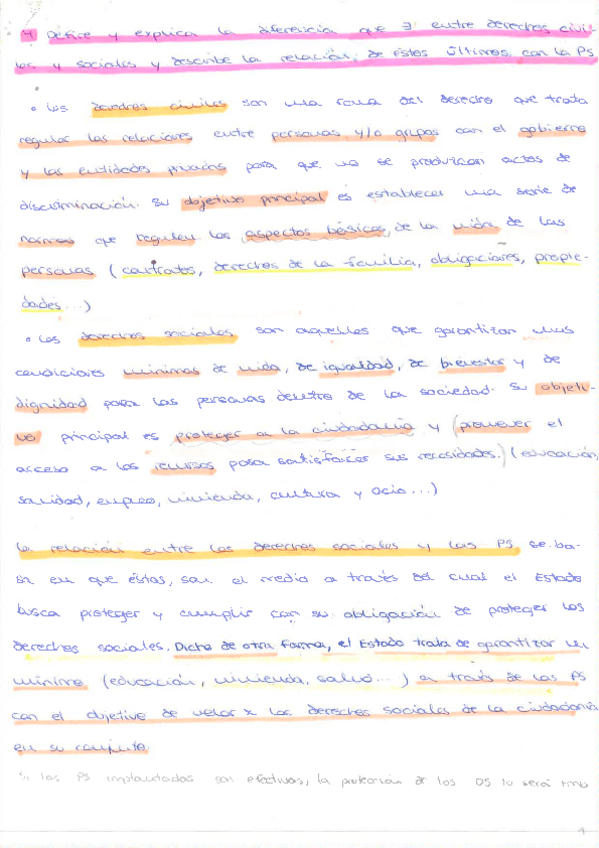 4) Define y explica la diferencia que ∃ entre derechos civi-
les y sociales y describe la relación, de éstos últimos, con la PS
• Los derechos civiles son una rama del derecho que trata
regular las relaciones entre personas y/o grupos con el gobierno
y las entidades privadas para que no se produzcan actos de
discriminación. Su objetivo principal es establecer una serie de
normas que regulen los aspectos básicos, de la vida, de las
personas (contratos, derechos de la familia, obligaciones, propie-
dades...)
• Los derechos sociales son aquellos que garantizan unas
condiciones mínimas de vida, de igualdad, de bienestar y de
dignidad para las personas dentro de la sociedad. Su objeti-
vo principal es proteger a la ciudadanía y (promover el
acceso a los recursos para satisfacer sus necesidades.) (educación,
sanidad, empleo, vivienda, cultura y ocio...)
La relación entre los derechos sociales y las PS, se ba-
sa en que éstas, son el medio a través del cual el Estado
busca proteger y cumplir con su obligación de proteger los
derechos sociales. Dicho de otra forma, el Estado trata de garantizar un
mínimo (educación, vivienda, salud...) a través de las PS
con el objetivo de velar x los derechos sociales de la ciudadanía
en su conjunto.
Si las PS implantadas son efectivas, la protección de los DS lo será
1